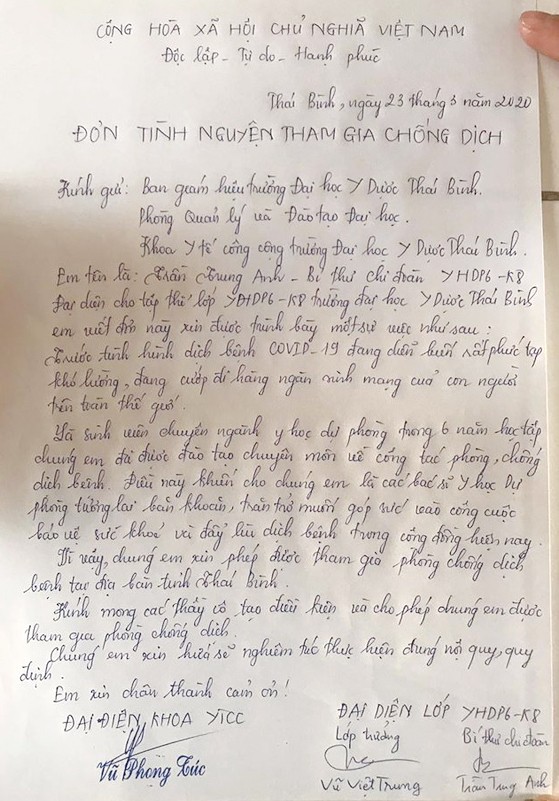 CỘNG HÒA XÃ HỘI CHỦ NGHĨA VIỆT NAM
Độc lập - Tự do - Hạnh phúc
Thái Bình, ngày 23 tháng 3 năm 2020
ĐƠN TÌNH NGUYỆN THAM GIA CHỐNG DỊCH
Kính gửi: Ban giám hiệu trường Đại học Y Dược Thái Bình.
Phòng Quản lý và Đào tạo Đại học.
Khoa Y tế công cộng trường Đại học Y Dược Thái Bình.
Em tên là: Trần Trung Anh - Bí thư chi đoàn YHDP6-K8
Đại diện cho tập thể lớp YHDP6-K8 trường đại học Y Dược Thái Bình
em viết đơn này xin được trình bày một sự việc như sau:
Trước tình hình dịch bệnh COVID-19 đang diễn biến rất phức tạp
khó lường, đang cướp đi hàng ngàn sinh mạng của con người
trên toàn thế giới.
Là sinh viên chuyên ngành y học dự phòng trong 6 năm học tập
chúng em đã được đào tạo chuyên môn về công tác phòng, chống
dịch bệnh. Điều này khiến cho chúng em là các bác sĩ Y học Dự
phòng tương lai băn khoăn, trăn trở muốn góp sức vào công cuộc
bảo vệ sức khoẻ và đẩy lùi dịch bệnh trong cộng đồng hiện nay.
Vì vậy, chúng em xin phép được tham gia phòng chống dịch
bệnh tại địa bàn tỉnh Thái Bình.
Kính mong các thầy cô tạo điều kiện và cho phép chúng em được
tham gia phòng chống dịch.
Chúng em xin hứa sẽ nghiêm túc thực hiện đúng nội quy, quy
định.
Em xin chân thành cảm ơn!
ĐẠI DIỆN KHOA YTCC
Vũ Phong Túc
ĐẠI DIỆN LỚP YHDP6-K8
Lớp trưởng
Bí thư chi đoàn
Vũ Việt Trung
Trần Trung Anh